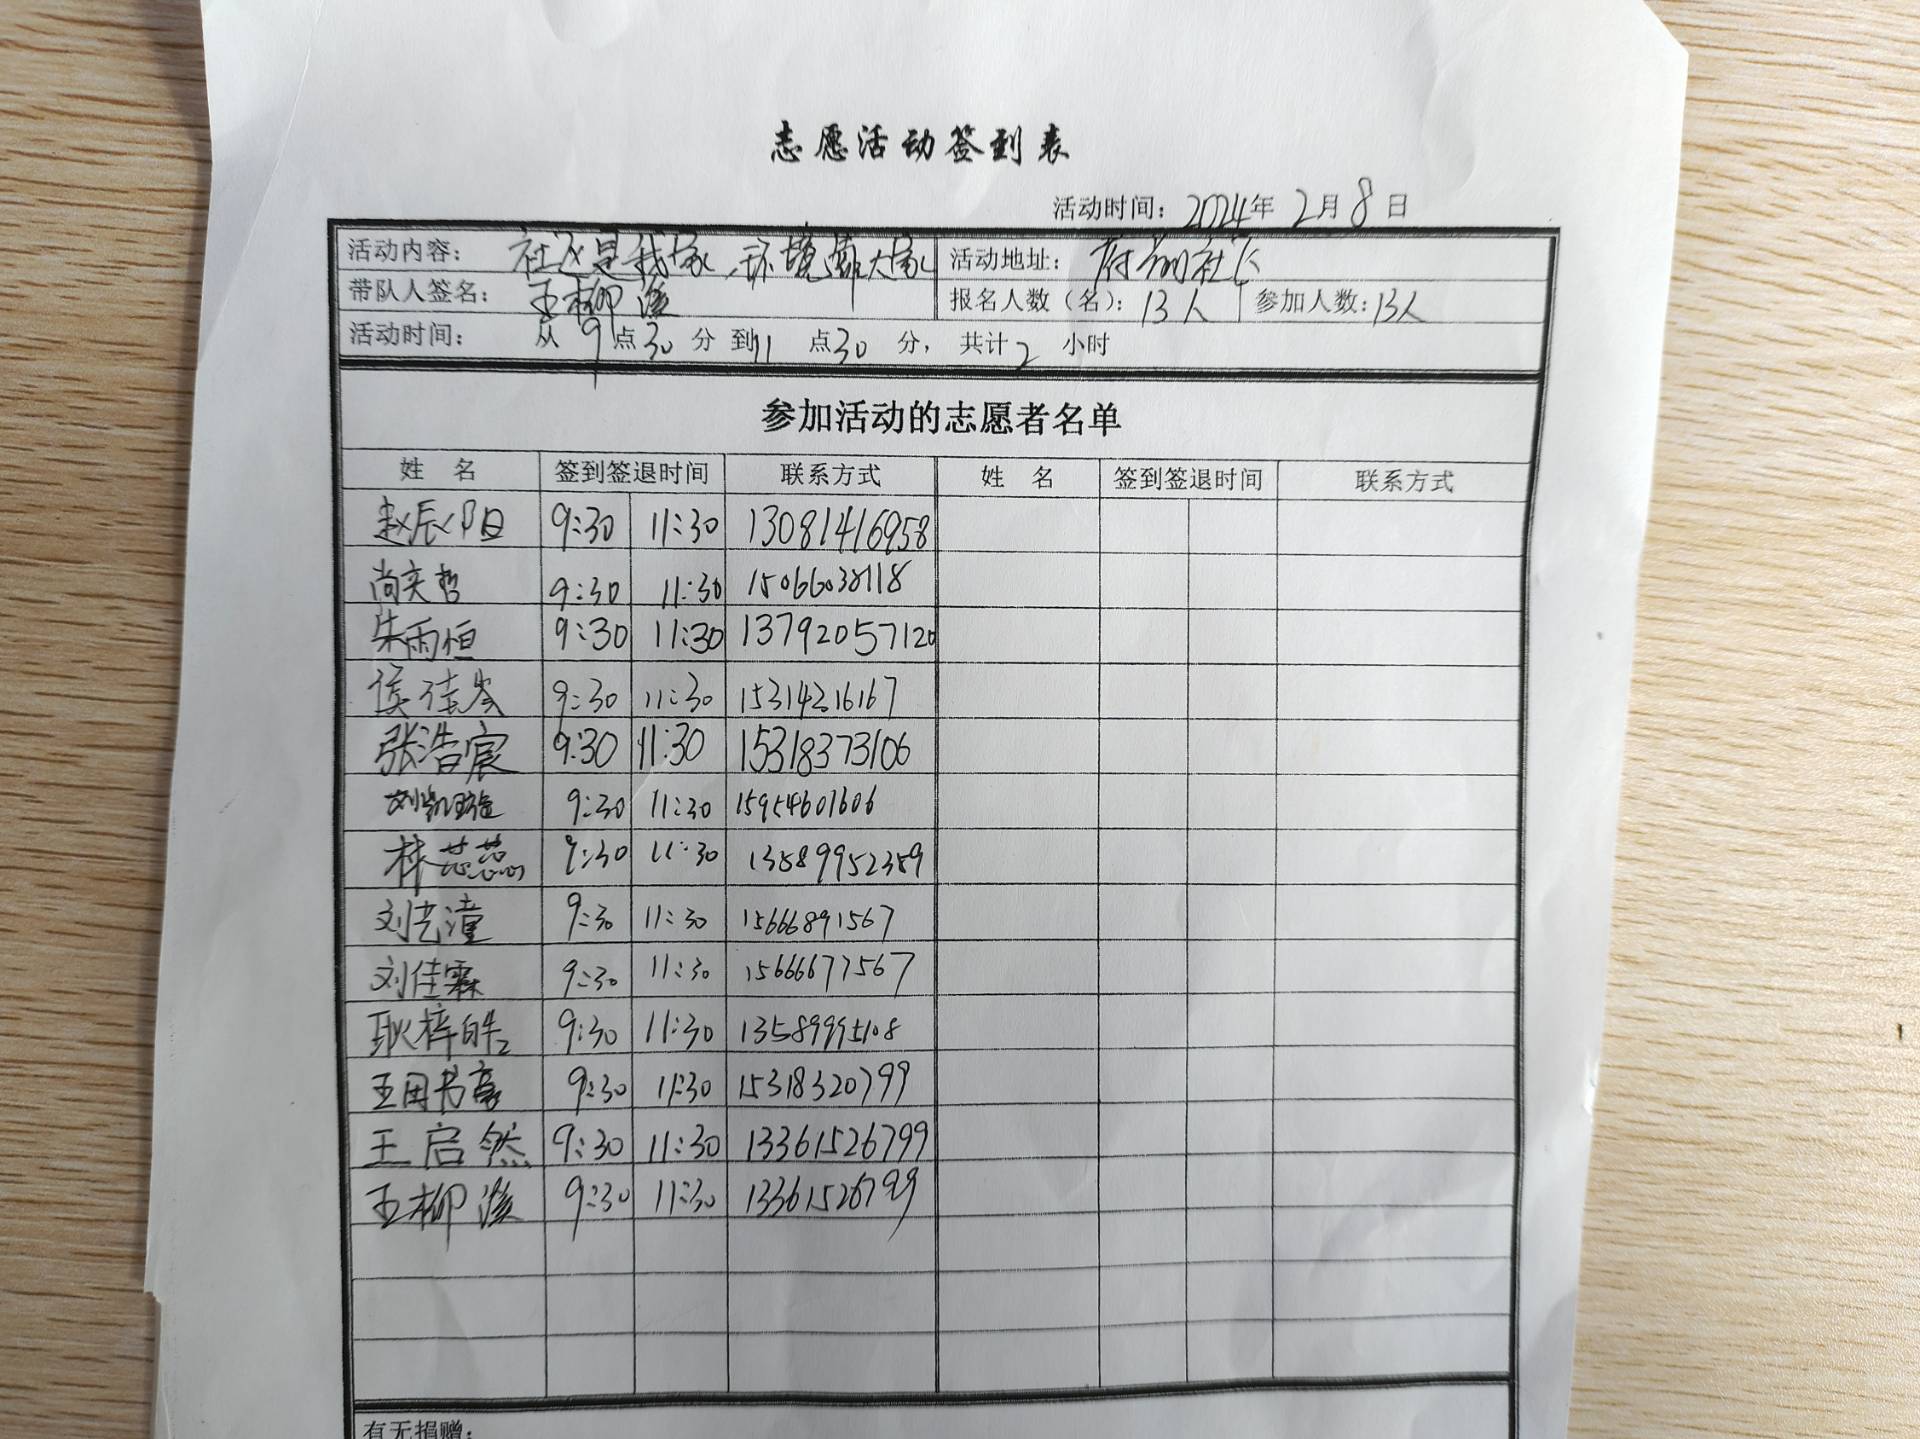 志愿活动签到表
活动时间：2024年 2月 8日
活动内容： 社区是我家，环境靠大家 活动地址： 府前社区
带队人签名： 王柳 报名人数（名）：13人 参加人数：13人
活动时间： 从 9点30 分 到11 点30 分， 共计2 小时
参加活动的志愿者名单
姓 名 签到签退时间 联系方式 姓 名 签到签退时间 联系方式
赵辰阳 9:30 11:30 13081416958
尚奕哲 9:30 11:30 15066038118
朱雨恒 9:30 11:30 13792057120
侯佳岑 9:30 11:30 15314216167
张浩宸 9:30 11:30 15318373106
刘凯璇 9:30 11:30 15954601606
林芯蕊 9:30 11:30 13589952389
刘艺潼 9:30 11:30 15666891567
刘佳霖 9:30 11:30 15666677567
耿梓皓 9:30 11:30 13589995108
王田书豪 9:30 11:30 15318320799
王启然 9:30 11:30 13361526799
王柳 9:30 11:30 13361526799
有无捐赠：